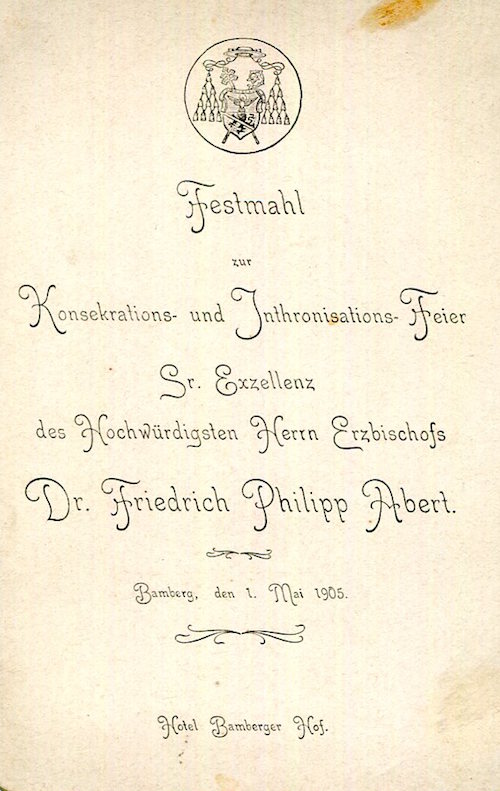 Festmahl
zur
Konsekrations- und Inthronisations-Feier
Sr. Exzellenz
des Hochwürdigsten Herrn Erzbischofs
Dr. Friedrich Philipp Abert.
Bamberg, den 1. Mai 1905.
Hotel Bamberger Hof.